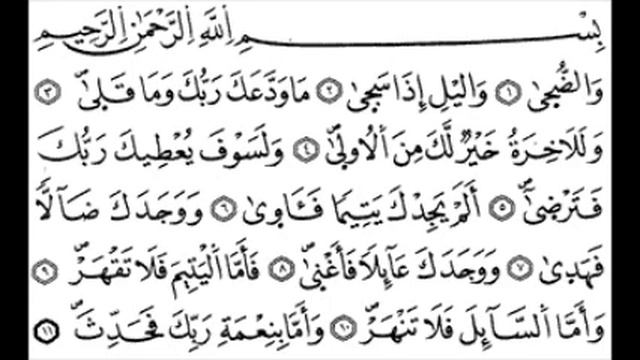 بِسْمِ اللَّهِ الرَّحْمَٰنِ الرَّحِيمِ
وَالضُّحَىٰ ١ وَالَّيْلِ إِذَا سَجَىٰ ٢ مَا وَدَّعَكَ رَبُّكَ وَمَا قَلَىٰ ٣
وَلَلْآخِرَةُ خَيْرٌ لَّكَ مِنَ الْأُولَىٰ ٤ وَلَسَوْفَ يُعْطِيكَ رَبُّكَ
فَتَرْضَىٰ ٥ أَلَمْ يَجِدْكَ يَتِيمًا فَـَٔاوَىٰ ٦ وَوَجَدَكَ ضَآلًّا
فَهَدَىٰ ٧ وَوَجَدَكَ عَآئِلًا فَأَغْنَىٰ ٨ فَأَمَّا الْيَتِيمَ فَلَا تَقْهَرْ ٩
وَأَمَّا السَّآئِلَ فَلَا تَنْهَرْ ١٠ وَأَمَّا بِنِعْمَةِ رَبِّكَ فَحَدِّثْ ١١